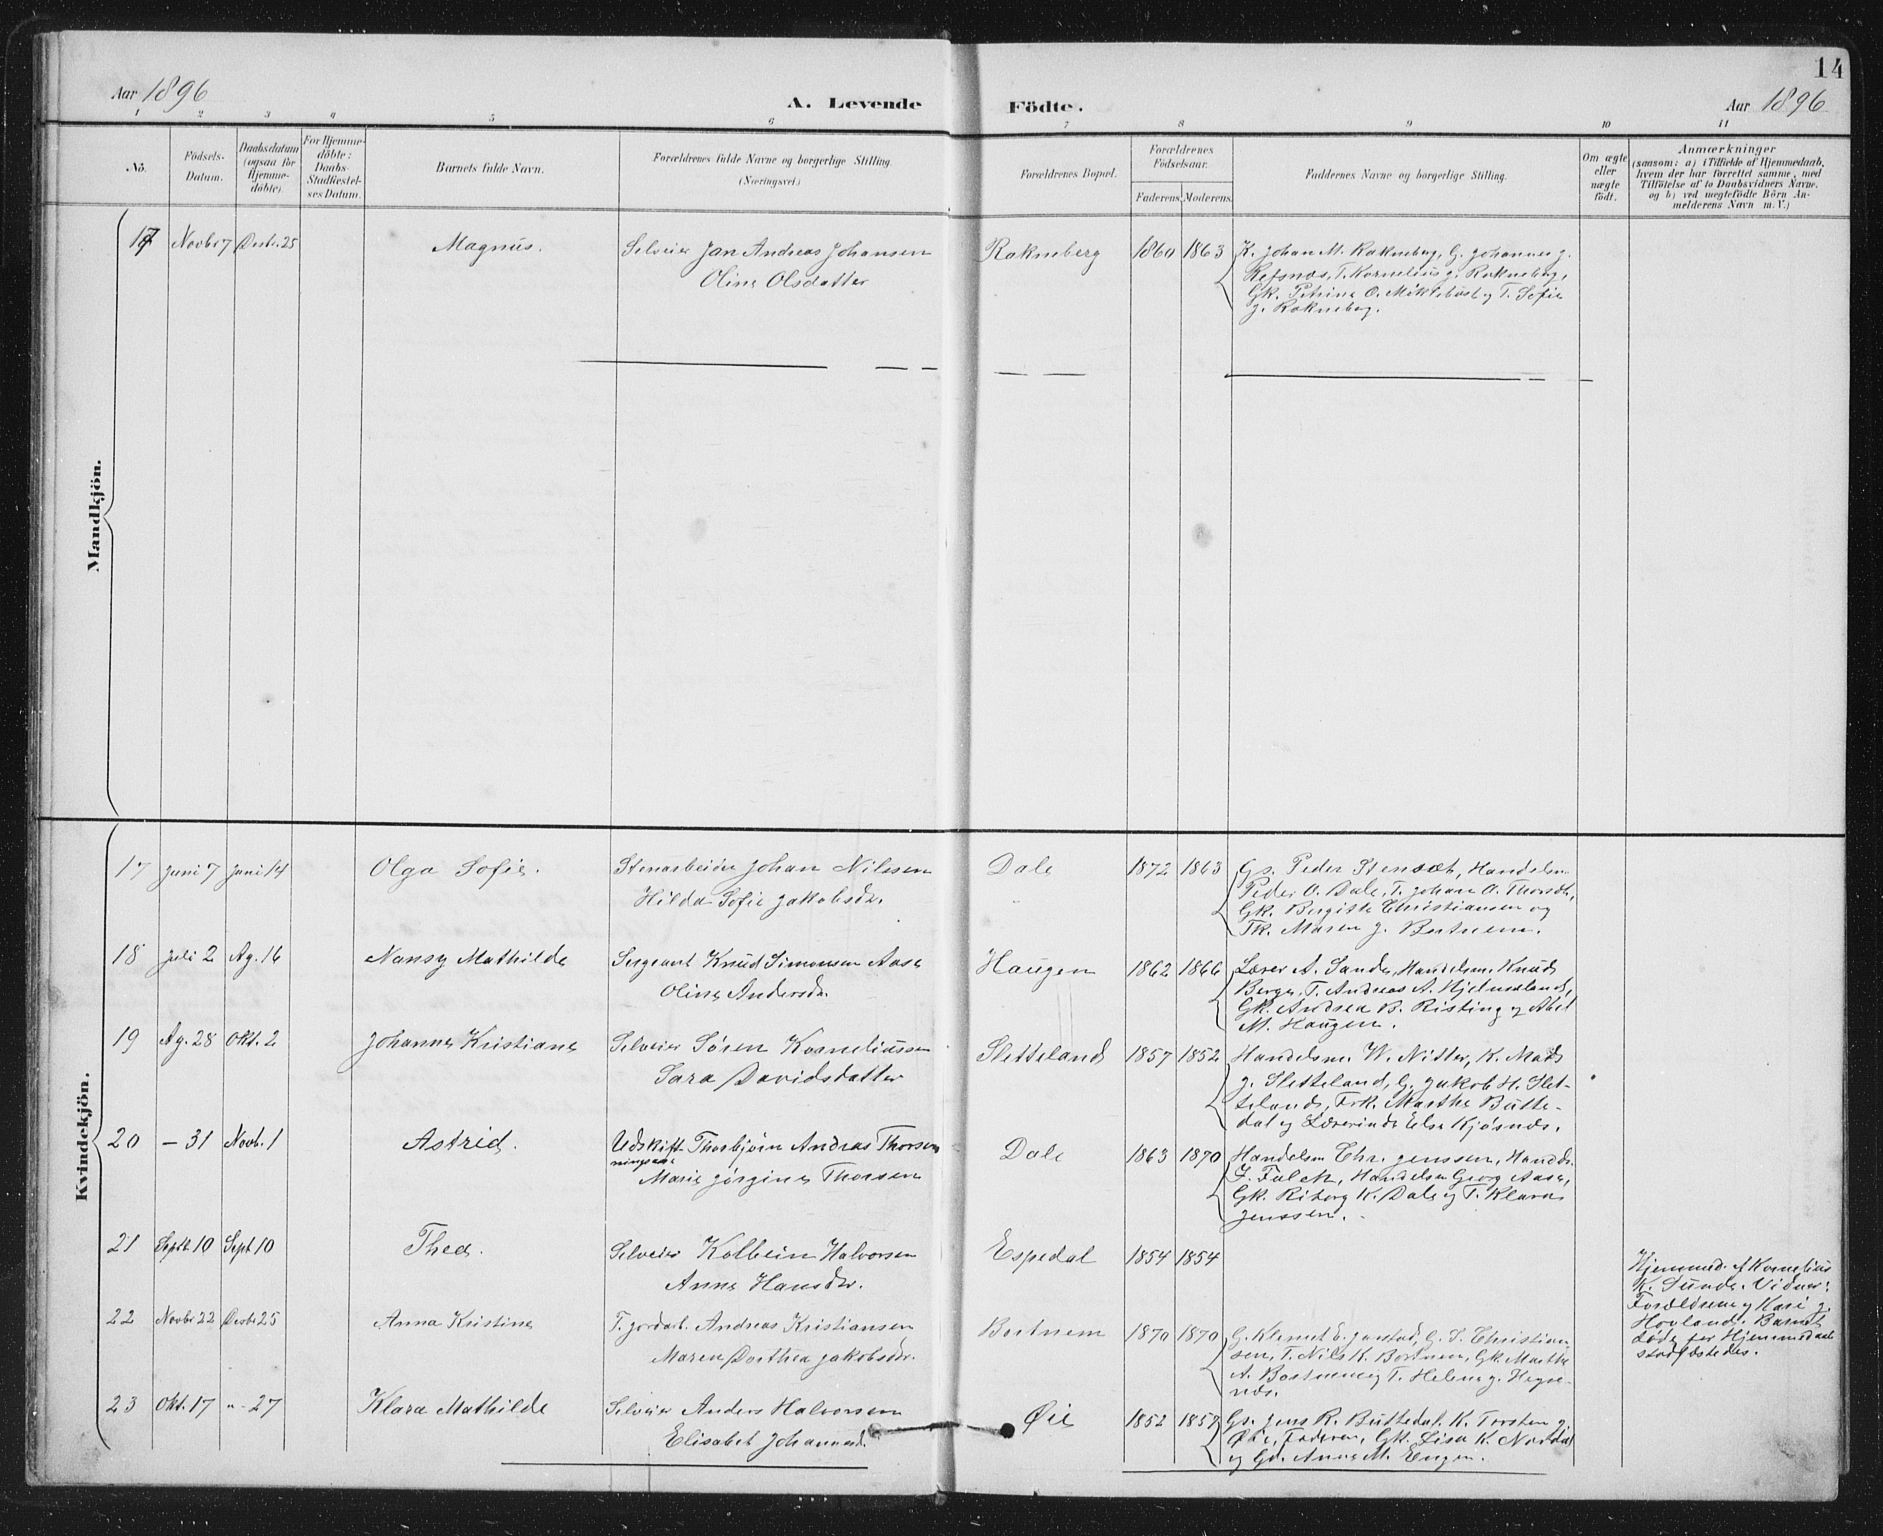 14
Aar 1896
A. Levende
Födte.
Aar 1896
1 2 3 4 5 6 7 8 9 10 11
No.
Födsels-
Datum.
Daabsdatum
(ogsaa for
Hjemme-
döbte).
For Hjemme-
döbte:
Daabs-
Stadfæstel-
ses Datum.
Barnets fulde Navn.
Forældrenes fulde Navne og borgerlige Stilling.
(Næringsvei.)
Forældrenes Bopæl.
Forældrenes
Födselsaar.
Faderens. Moderens.
Faddernes Navne og borgerlige Stilling.
Om ægte
eller
uægte
födt.
Anmærkninger
(saasom: a) i Tilfælde af Hjemmedaab,
hvem der har forrettet samme, med
Tilföielse af to Daabsvidners Navne,
og b) ved uegtefödte Börn An-
melderens Navn m. V.)
Mandkjön.
17 Novbr 7 Desbr. 25 Magnus.
Selveier Jan Andreas Johansen
Oline Olsdatter
Rakneberg 1860 1863
K. Johan M. Rakneberg, G. Johannes J.
Refsnes, T. Kornelius J. Rakneberg,
Gk. Petrine O. Mikkelbust og T. Sofie
J. Rakneberg.
Kvindekjön.
17 Juni 7 Juni 14 Olga Sofie.
Stenarbeider Johan Nilssen
Hilda Sofie Jakobsdr.
Dale 1872 1863
Gs. Peder Stensæt, Handelsm.
Peder O. Dale, T. Johan O. Thorsæt,
Gk. Bergitte Christiansen og
Tk. Maren J. Bortnem.
18 Juli 2 Ag. 16 Nansy Mathilde
Sergeant Knud Simonsen Aase
Oline Andersdr.
Haugen 1862 1866
Lærer A. Sande, Handelsm. Knud
Berge, T. Andreas A. Hjelmeland,
Gk. Andrea B. Risting og Abel
M. Haugen.
19 Ag. 28 Okt. 2 Johanne Kristiane
Selveier Søren Korneliussen
Sara Davidsdatter
Sletteland 1857 1852
Handelsm. W. Nitter, K. Mads
J. Sletteland, G. Jakob H. Slet-
teland, Frk. Marthe Butte-
dal og Lærerinde Else Kjøsnes.
20 – 31 Novb. 1 Astrid.
Udskift- Thorbjørn Andreas Thorsen
ningsass.
Marie Jørgine Thorsen
Dale 1863 1870
Handelsm Chr. Jenssen, Handels.
J. Falch, Handelsm Georg Aase,
Gk. Riborg K. Dale og T. Klara
Jenssen.
21 Septb. 10 Sept 10 Thea.
Selveier Kolbein Halvorsen
Anne Hansdr.
Espedal 1854 1854
Hjemmed. af Kornelius
K. Sunde. Vidner:
Forældrene og Kari J.
Hovland. Barnet
døde før Hjemmedaab
stadfæstedes.
22 Novbr 22 Desbr 25 Anna Kristine
F. jordarb. Andreas Kristiansen
Maren Dorthea Jakobsdr.
Bortnem 1870 1870
G. Klemet E. Jarstad, G. S. Christian-
sen, T. Nils K. Bortnem, Gk. Marthe
A. Bortnem og T. Helene J. Hegre-
nes.
23 Okt. 17 „ - 27 Klara Mathilde
Selveier Anders Halvorsen
Elisabet Johannesd.
Øie 1852 1857
Gs. Jens R. Buttedal, K. Torsten J.
Øie, Faderen, Gk. Lisa K. Nordal
og Gd. Anne M. Engen.